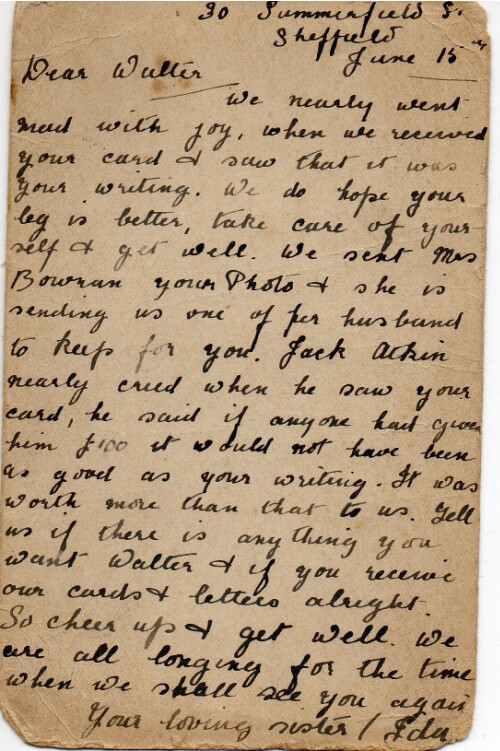 30 Summerfield St.
Sheffield
June 15th
Dear Walter
We nearly went
mad with joy, when we received
your card & saw that it was
your writing. We do hope your
leg is better, take care of your
self & get well. We sent Mrs
Bowman your Photo & she is
sending us one of her husband
to keep for you. Jack Atkin
nearly cried when he saw your
card, he said if anyone had given
him £100 it would not have been
as good as your writing. It was
worth more than that to us. Tell
us if there is anything you
want Walter & if you receive
our cards & letters alright.
So cheer up & get well. We
are all longing for the time
when we shall see you again
Your loving sister / Ida